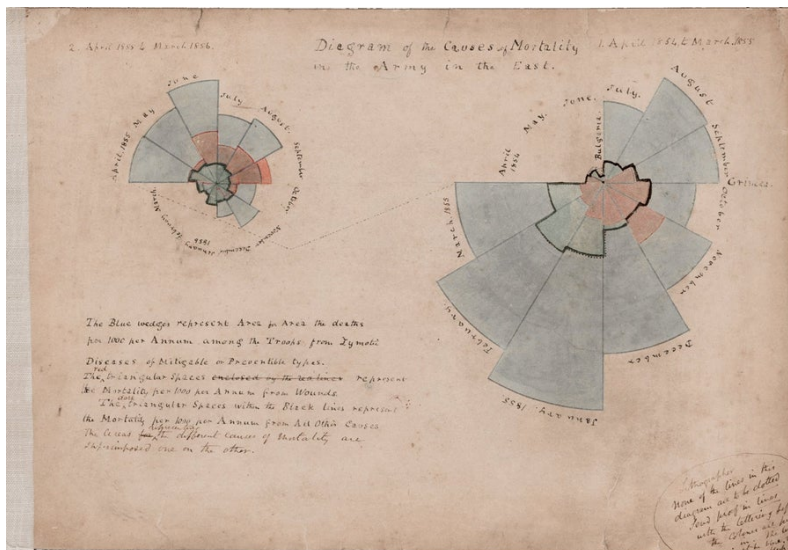 2. April 1855 to March 1856.
Diagram of the Causes of Mortality
in the Army in the East.
1. April 1854 to March 1855
June
July
August
September
October
November
December
January
1856
February
March
April 1855
May
April
1854
May.
June.
July.
Bulgaria.
August
September
Crimea.
October
November
December
January 1855
February.
March 1855
The Blue wedges represent Area for Area the deaths
per 1000 per Annum among the Troops from Zymotic
Diseases of Mitigable or Preventible types.
The red triangular Spaces enclosed by the red lines represent
the Mortality per 1000 per Annum from Wounds
The dark triangular Spaces within the Black lines represent
the Mortality per 1000 per Annum from All Other Causes
The the different causes of Mortality are
superimposed one on the other.
None of the lines in this
diagram are to be dotted
Send proof in lines
with the lettering
the colours are